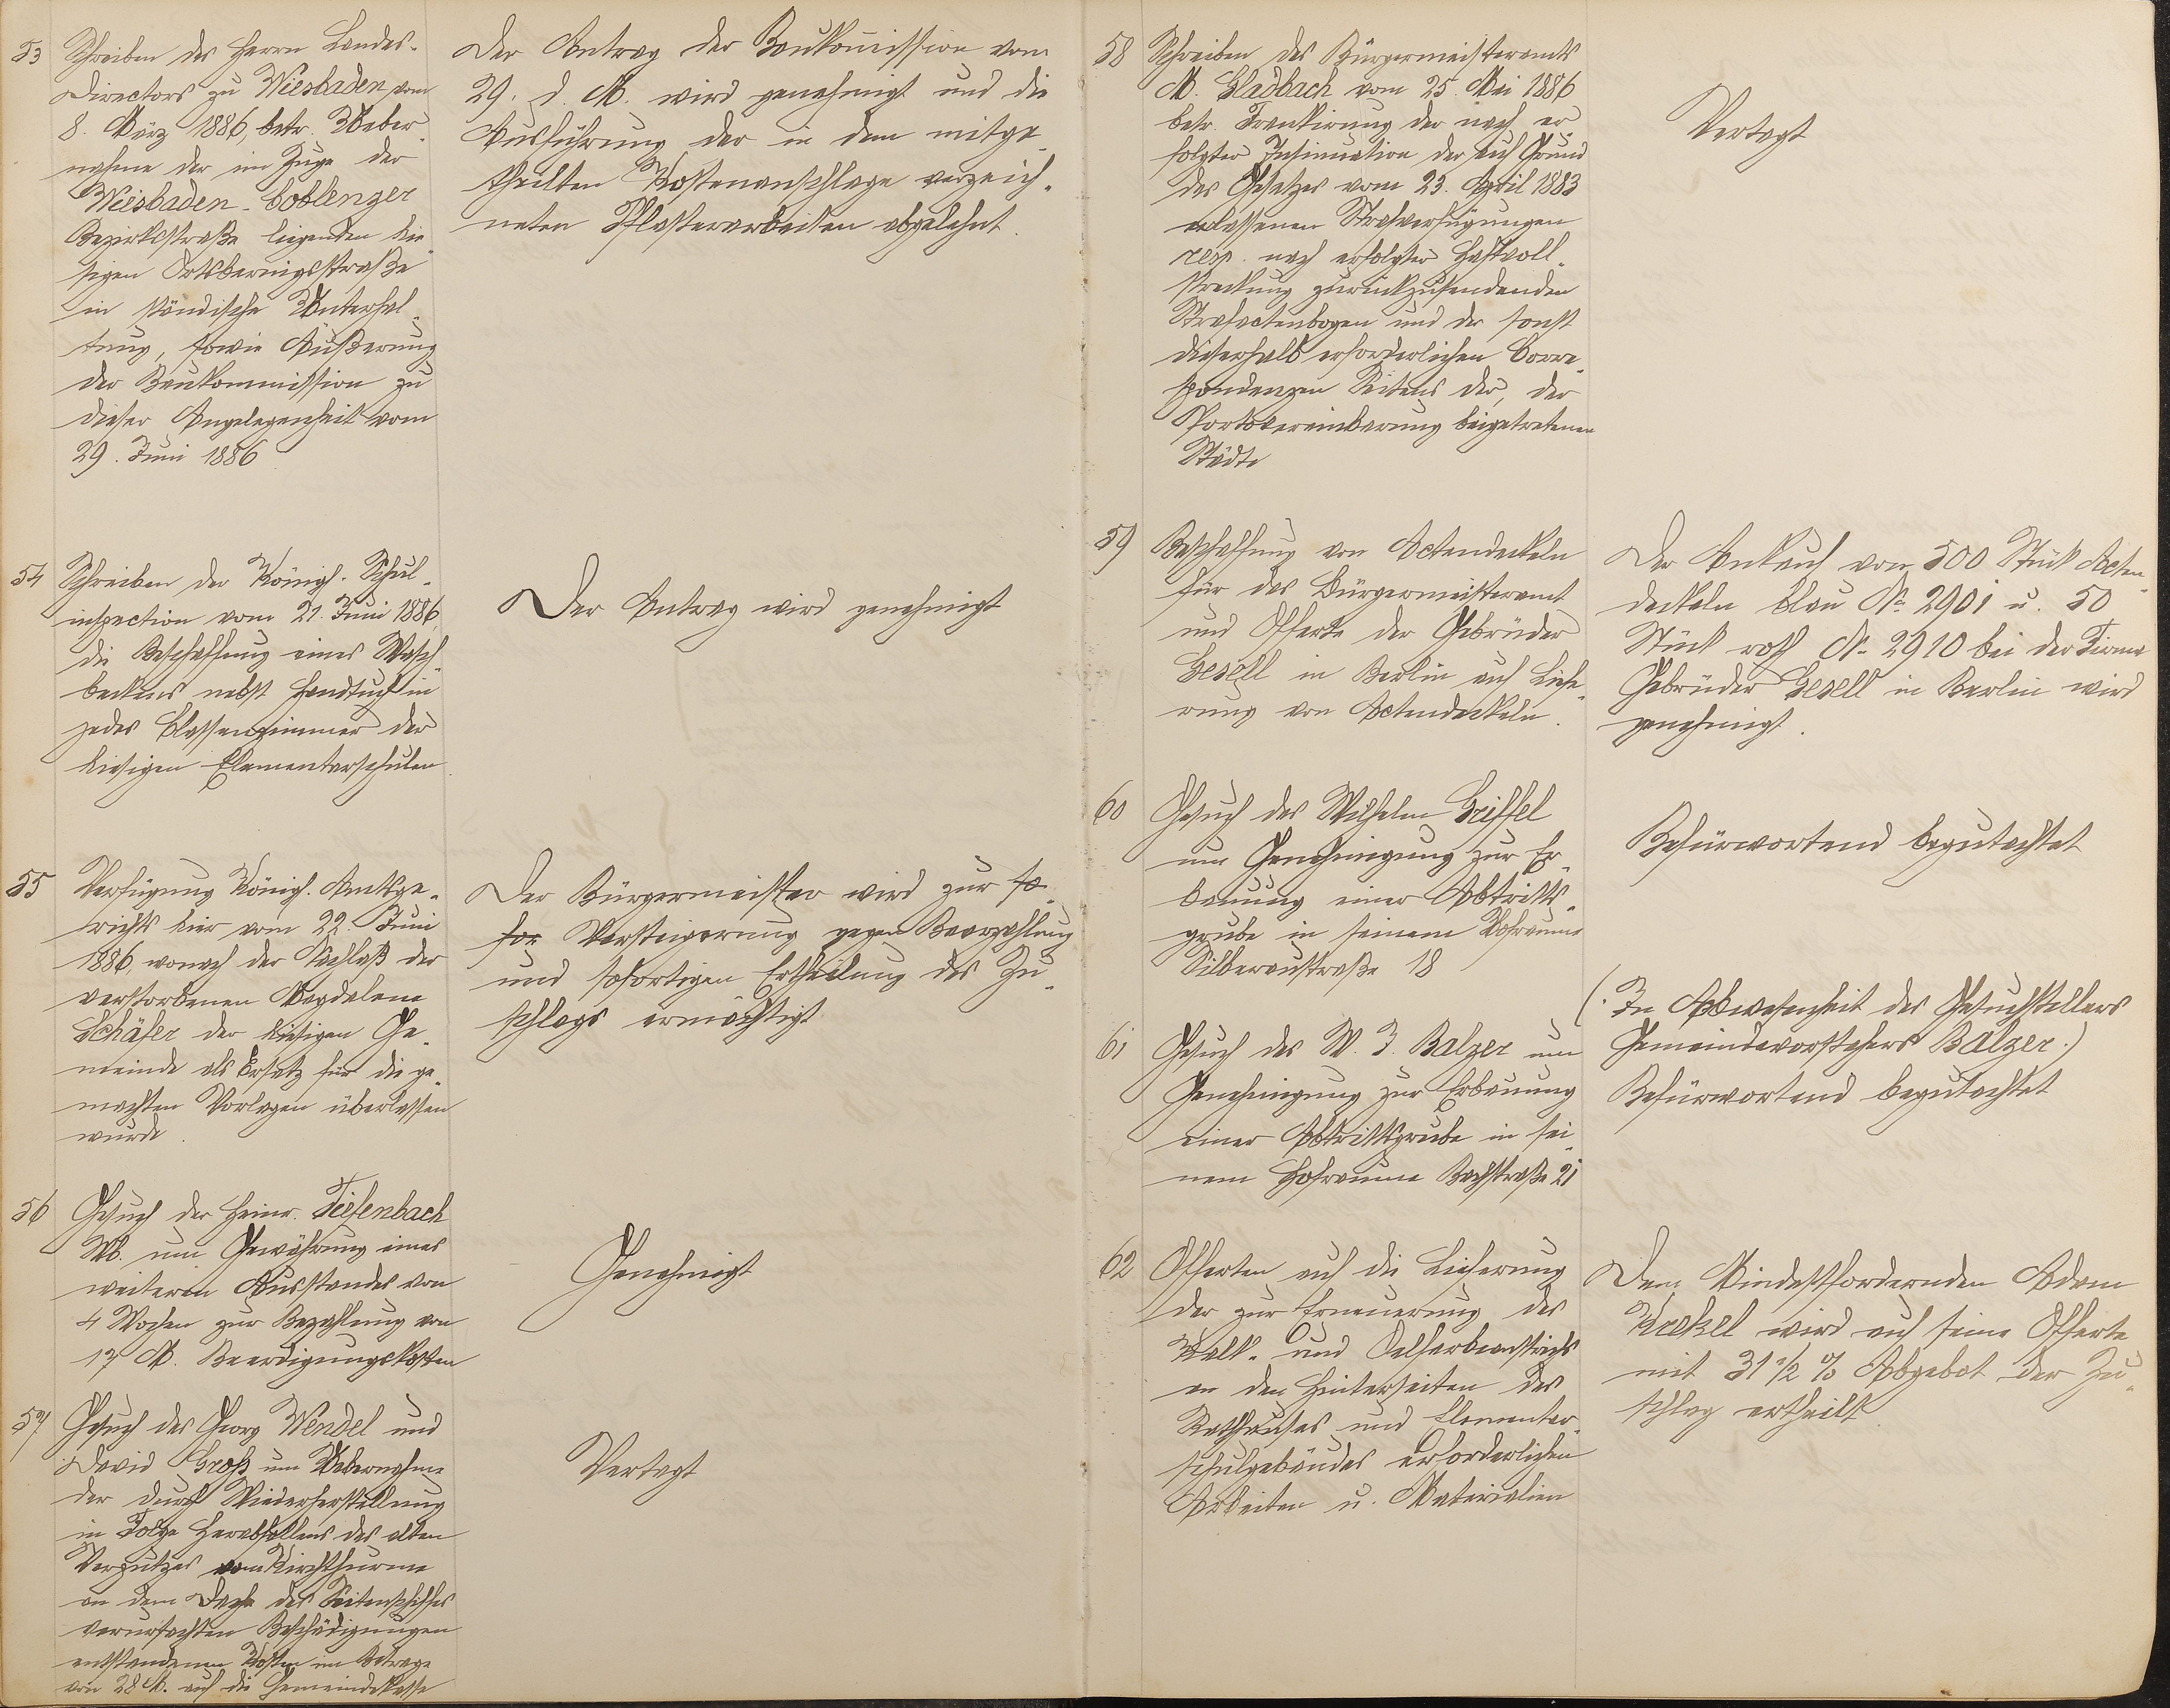 53 Schreiben des Herrn Landes-
Directors zu Wiesbaden vom
8. März 1886, betr. Ueber-
nahme der im Zuge der
Wiesbaden-Coblenzer
Bezirksstraße liegenden hie-
sigen Ortsberingsstraße
in ständische Unterhal-
tung, sowie Äußerung
der Baukommission zu
dieser Angelegenheit vom
29. Juni 1886
Der Antrag der Baukommission vom
29. d. M. wird genehmigt und die
Ausführung der in dem mitge-
theilten Kostenanschlage verzeich-
neten Pflasterarbeiten abgelehnt.
54 Schreiben der Königl. Schul-
inspection vom 21. Juni 1886
die Beschaffung eines Wasch-
beckens nebst Handtuch in
jedes Classenzimmer der
hiesigen Elementarschulen.
Der Antrag wird genehmigt
55 Verfügung Königl. Amtsge-
richts hier vom 22. Juni
1886, wonach der Nachlaß der
verstorbenen Magdalena
Schäfer der hiesigen Ge-
meinde als Ersatz für die ge-
machten Vorlagen überlassen
wurde.
Der Bürgermeister wird zur so-
for Versteigerung gegen Baarzahlung
und sofortigen Ertheilung des Zu-
schlags ermächtigt
56 Gesuch der Heinr. Tiefenbach
Wb. um Gewährung eines
weiteren Ausstandes von
4 Wochen zur Bezahlung von
17 M. Beerdigungskosten
Genehmigt
57 Gesuch des Georg Wendel und
David Groß um Uebernahme
der durch Wiederherstellung
in Folge Herabfallens des alten
Verputzes vom Kirchthurme
an dem Dache des Seitenschiffes
verursachten Beschädigungen
entstandenen Kosten im Betrage
von 28 M. auf die Gemeindekasse
Vertagt
58 Schreiben des Bürgermeisteramts
M. Gladbach vom 25. Mai 1886
betr. Frankirung der nach er
folgter Insinuation der auf Grund
des Gesetzes vom 23. April 1883
erlassenen Strafverfügungen
resp. nach erfolgter Haftvoll-
streckung zurückzusendenden
Strafactenbogen und der sonst
dieserhalb erforderlichen Corre-
spondenzen Seitens der, der
Portovereinbarung beigetretenen
Städte
Vertagt
59 Beschaffung von Actendeckeln
für das Bürgermeisteramt
und Offerte der Gebrüder
Gesell in Berlin auf Liefe-
rung von Actendeckeln.
Der Ankauf von 500 Stück Acten-
deckeln blau No 2901 u. 50
Stück roth No 2910 bei der Firma
Gebrüder Gesell in Berlin wird
genehmigt.
60 Gesuch des Wilhelm Griffel
um Genehmigung zur Er-
bauung einer Abtritts-
grube in seinem Hofraume
Silberaustraße 18
Befürwortend begutachtet
61 Gesuch des W. J. Balzer um
Genehmigung zur Erbauung
einer Abtrittsgrube in sei-
nem Hofraume Bachstraße 21
(In Abwesenheit des Gesuchstellers
Gemeindevorstehers Balzer.)
Befürwortend begutachtet
62 Offerten auf die Lieferung
der zur Erneuerung des
Kalk- und Oelfarbeanstrichs
an den Hinterseiten des
Rathhauses und Elementar-
schulgebäudes erforderlichen
Arbeiten u. Materialien
Dem Mindestfordernden Adam
Krekel wird auf seine Offerte
mit 31 1/2 % Abgebot der Zu-
schlag ertheilt